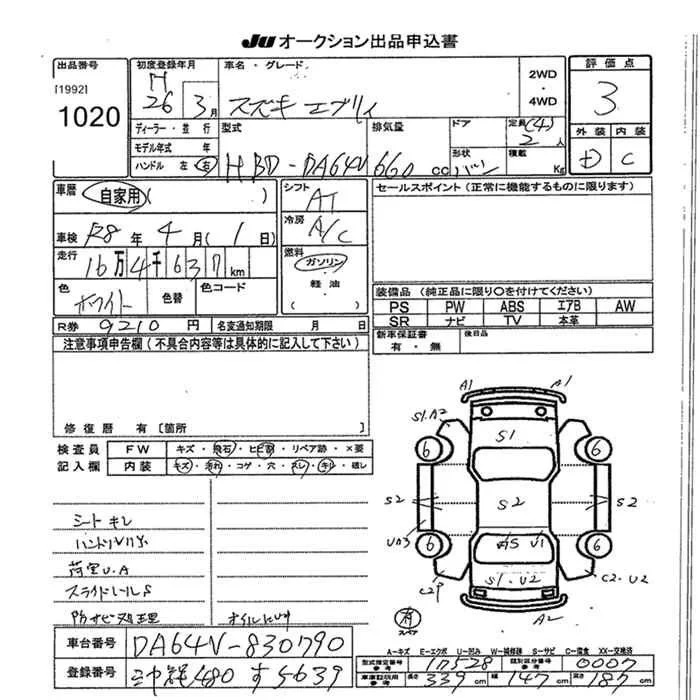 JU オークション出品申込書
出品番号
[1992]
1020
初度登録年月
H
26 3月
車名・グレード
スズキ エブリイ
2WD
・
4WD
評価点
3
外装 内装
D C
ディーラー・並行
モデル年式 年
ハンドル 左 右
型式
HBD-DA64V
排気量
660 cc
ドア
形状
バン
定員 (4)
2 人
積載
Kg
車歴
自家用 ( )
車検 R8 年 4 月 ( 1 日)
走行
16万 4千 6 3 7 km
色
ホワイト
色替
色コード
シフト
AT
冷房
A/C
燃料
ガソリン
・
軽油
セールスポイント (正常に機能するものに限ります)
装備品 (純正品に限り〇を付けてください)
PS PW ABS エアB AW
SR ナビ TV 本革
新車保証書
有・無
後日品
R券 9210 円
名変通知期限 月 日
注意事項申告欄 (不具合内容等は具体的に記入して下さい)
修復歴 有 〔箇所
検査員
記入欄
FW キズ・飛石・ヒビ割・リペア跡・×要
内装 キズ・汚れ・コゲ・穴・スレ・キレ・破レ
シートキレ
荷室U.A
スライドレールS
防サビ処理
オイルにじみ
A1 A1
S1.A2
S1
6 6
S2 S2 S2
UA3
U1
6 6
S1・U2
C2P C2・U2
A2
有
スペア
A-キズ E-エクボ U-凹み W-補修跡 S-サビ C-腐食 XX-交換済
車台番号 DA64V-830790
登録番号 480 す 5639
型式指定番号
参考
17528
類別区分番号
参考
0007
車庫証明用
参考
長さ 339 cm 幅 147 cm 高さ 187 cm